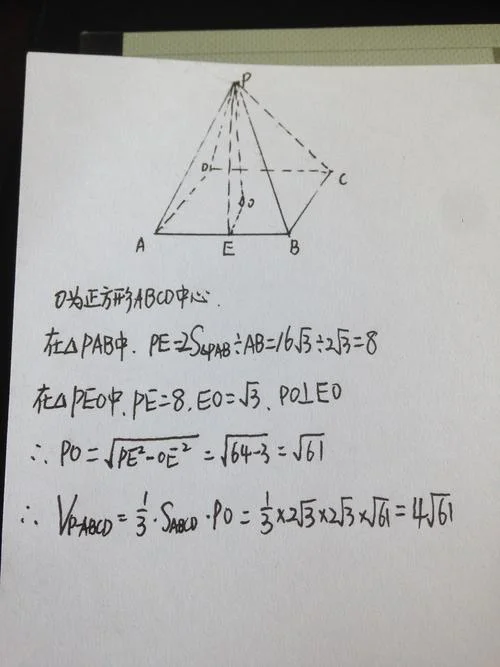 P
D
C
O
A
E
B
O为正方形ABCD中心.
在△PAB中. PE=2S△PAB÷AB=16√3÷2√3=8
在△PEO中, PE=8, EO=√3, PO⊥EO
∴ PO=√PE²-OE² = √64-3 = √61
∴ VP-ABCD = 1/3·SABCD·PO = 1/3×2√3×2√3×√61 = 4√61